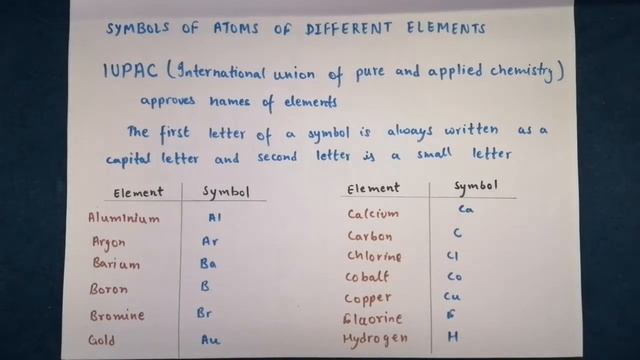 SYMBOLS OF ATOMS OF DIFFERENT ELEMENTS
IUPAC (International union of pure and applied chemistry)
approves names of elements
The first letter of a symbol is always written as a
capital letter and second letter is a small letter
Element Symbol
Aluminium Al
Argon Ar
Barium Ba
Boron B
Bromine Br
Gold Au
Element Symbol
Calcium Ca
Carbon C
Chlorine Cl
Cobalt Co
Copper Cu
Flaorine F
Hydrogen H